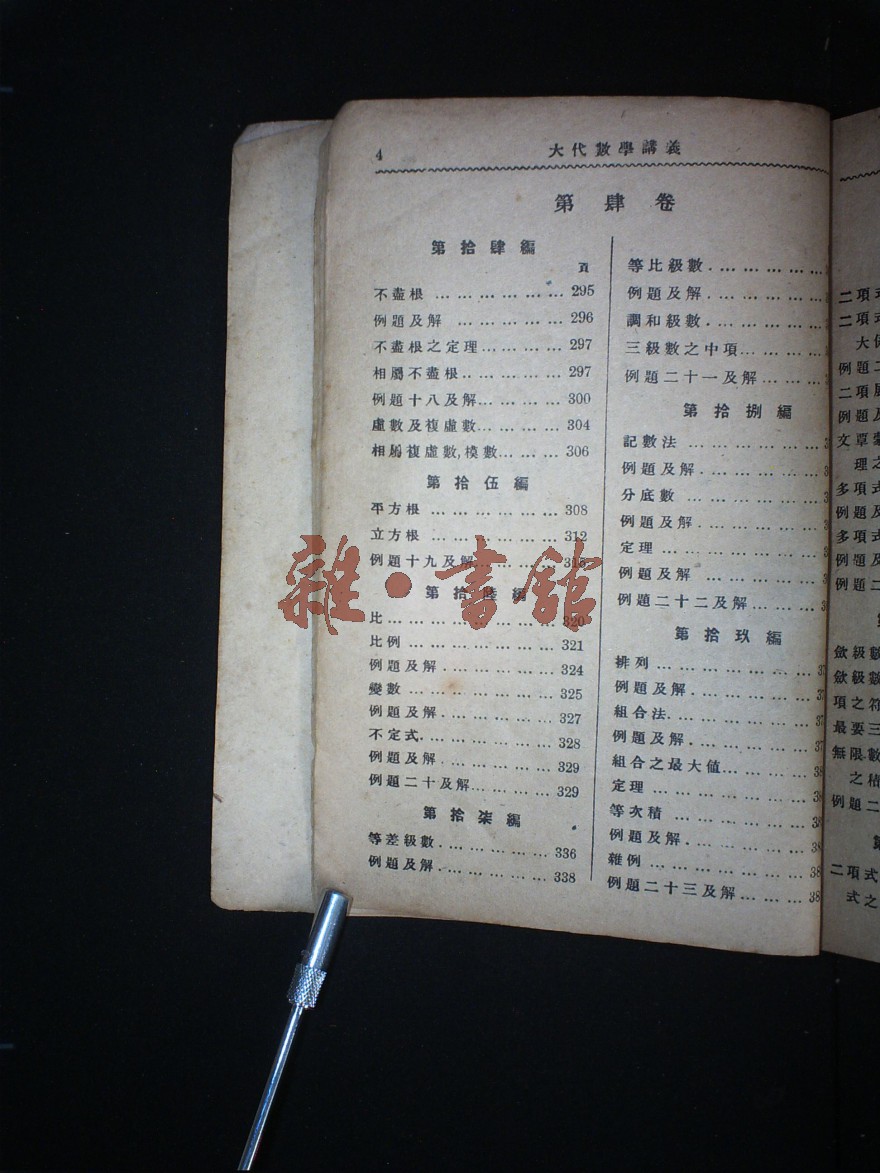 4
大代數學講義
第肆卷
第拾肆編
頁
不盡根 … … … … … … 295
例題及解 … … … … … 296
不盡根之定理… … … … 297
相屬不盡根… … … … … 297
例題十八及解… … … … 300
虛數及複虛數… … … … 304
相屬複虛數,模數… … … 306
第拾伍編
平方根 … … … … … … 308
立方根 … … … … … … 312
例題十九及解… … … … 315
第拾陸編
比… … … … … … … … 320
比例… … … … … … … 321
例題及解 … … … … … 324
變數 … … … … … … … 325
例題及解 … … … … … 327
不定式… … … … … … 328
例題及解 … … … … … 329
例題二十及解… … … … 329
第拾柒編
等差級數 … … … … … 336
例題及解 … … … … … 338
等比級數 … … … … …
例題及解 … … … … …
調和級數 … … … … …
三級數之中項… … … …
例題二十一及解… … …
第拾捌編
記數法 … … … … … …
例題及解 … … … … …
分底數 … … … … … …
例題及解 … … … … …
定理 … … … … … … …
例題及解 … … … … …
例題二十二及解… … …
第拾玖編
排列 … … … … … … …
例題及解 … … … … …
組合法… … … … … …
例題及解 … … … … …
組合之最大值… … … …
定理 … … … … … … …
等次積 … … … … … …
例題及解 … … … … …
雜例 … … … … … … …
例題二十三及解… … …
二項式
二項式
例題二
二項展
例題及
理之
多項式
例題及
多項式
例題及
例題二
斂級數
斂級數
項之符
最要三
無限數
之積
例題二
二項式
式之
雜·書館